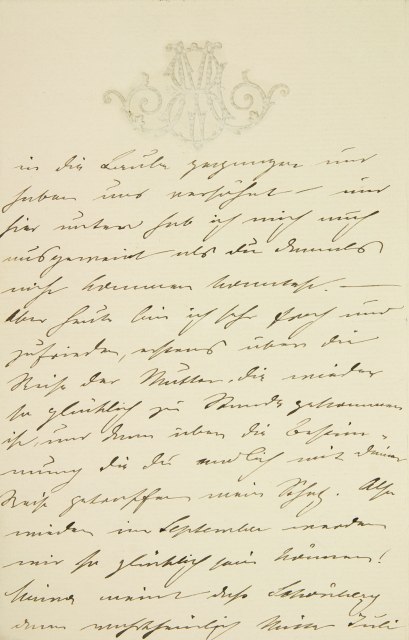 in die Laube gegangen und
haben uns versöhnt – und
hier unten hab ich mich auch
ausgeweint als du damals
nicht kommen konntest. —
Aber heute bin ich sehr froh und
zufrieden, erstens über die
Reise der Mutter, die wieder
so glücklich zu Stande gekommen
ist, und dann über die Bestim-
mung die du endlich mit deiner
Reise getroffen mein Schatz. Also
wieder im September werden
wir so glücklich sein können!
meint daß Schönberg
dann wahrscheinlich Mitte Juli